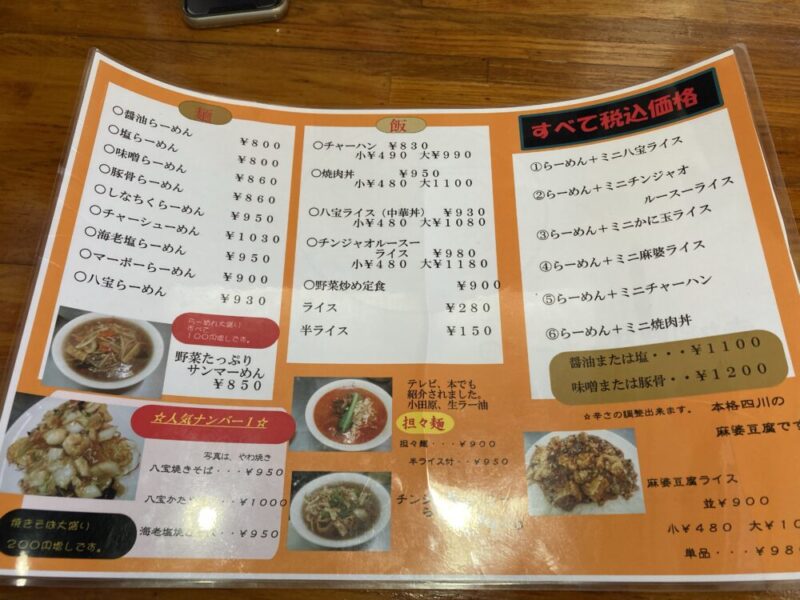 麺
○醤油らーめん ￥８００
○塩らーめん ￥８００
○味噌らーめん ￥８６０
○豚骨らーめん ￥８６０
○しなちくらーめん ￥９５０
○チャーシューめん ￥１０３０
○海老塩らーめん ￥９５０
○マーボーらーめん ￥９００
○八宝らーめん ￥９３０
らーめん大盛り
すべて
１００円増しです。
野菜たっぷり
サンマーめん
￥８５０
☆人気ナンバー１☆
写真は、やわ焼き
八宝焼きそば・・・￥９５０
八宝かた ￥１０００
海老塩焼 ￥９５０
焼きそば大盛り
２００円増しです。
飯
○チャーハン ￥８３０
小￥４９０ 大￥９９０
○焼肉丼 ￥９５０
小￥４８０ 大￥１１００
○八宝ライス（中華丼） ￥９３０
小￥４８０ 大￥１０８０
○チンジャオルースー
ライス ￥９８０
小￥４８０ 大￥１１８０
○野菜炒め定食 ￥９００
ライス ￥２８０
半ライス ￥１５０
テレビ、本でも
紹介されました。
小田原、生ラー油
担々麺
担々麺・・・￥９００
半ライス付・・￥９５０
チンジ
ら
すべて税込価格
①らーめん＋ミニ八宝ライス
②らーめん＋ミニチンジャオ
ルースーライス
③らーめん＋ミニかに玉ライス
④らーめん＋ミニ麻婆ライス
⑤らーめん＋ミニチャーハン
⑥らーめん＋ミニ焼肉丼
醤油または塩・・・￥１１００
味噌または豚骨・・￥１２００
☆辛さの調整出来ます。 本格四川の
麻婆豆腐です
麻婆豆腐ライス
並￥９００
小￥４８０ 大￥１０
単品・・・￥９８